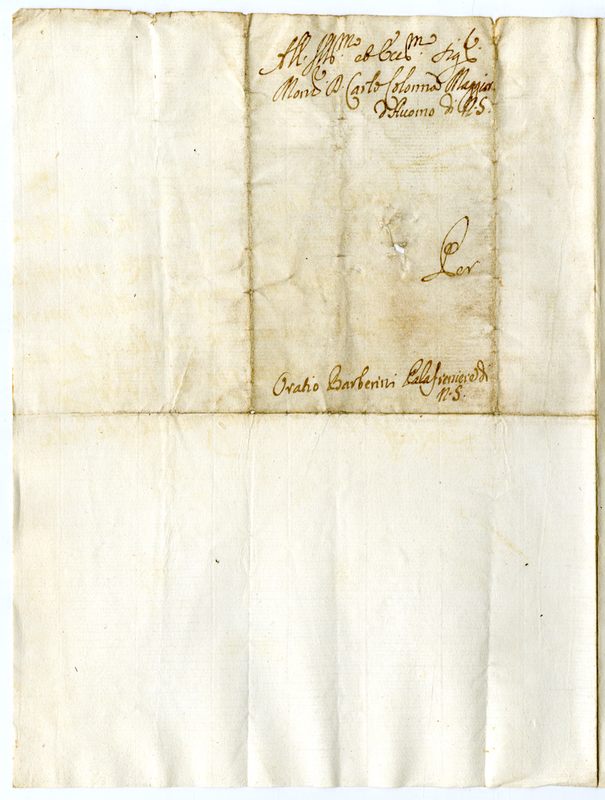 All. Ill.mo et Ecc.mo Sig.r
Mons.r D. Carlo Colonna Maggior.
d'Huomo di N. S.
Per
Oratio Barberini Palafreniere di
N. S.